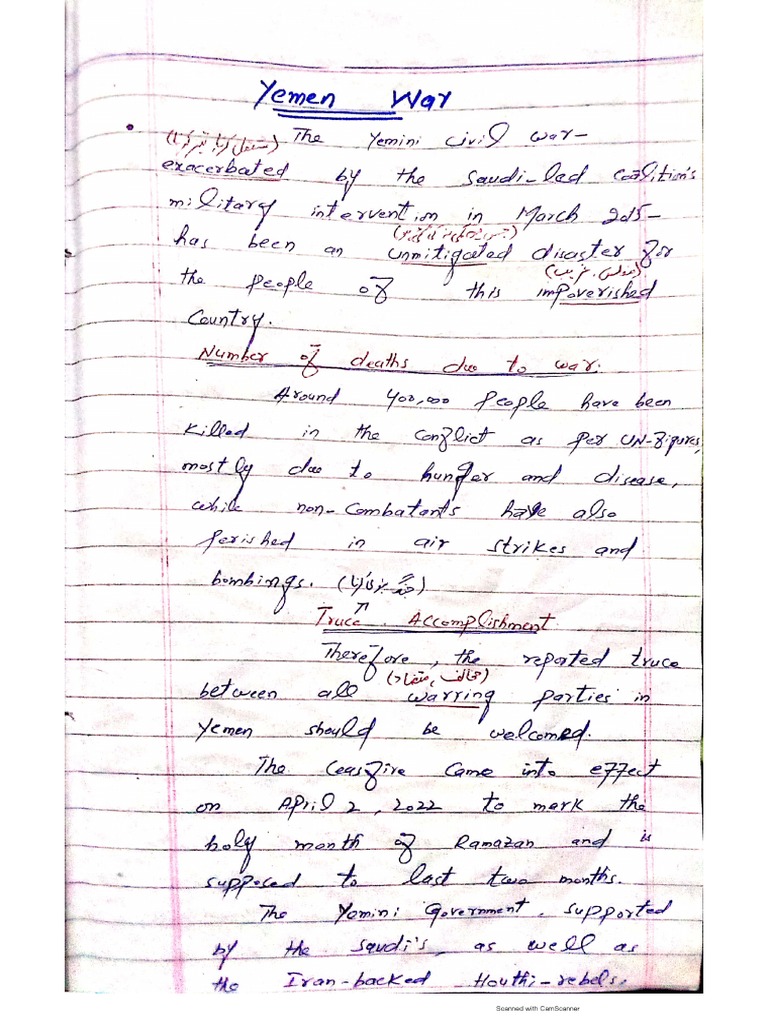 Yemen War
The Yemini civil war-
exacerbated by the Saudi-led coalition's
military intervention in March 2015-
has been an unmitigated disaster for
the people of this impoverished
Country.
Number of deaths due to war:
Around 400,000 people have been
killed in the conflict as per UN-figures,
mostly due to hunger and disease,
while non-combatants have also
perished in air strikes and
bombings.
Truce Accomplishment
Therefore, the reported truce
(مخالف، متضاد)
between all warring parties in
Yemen should be welcomed.
The Ceasfire Came into effect
on April 2, 2022 to mark the
holy month of Ramazan and is
supposed to last two months.
The Yemini Government, supported
by the Saudi's, as well as
the Iran-backed Houthi-rebels.
Scanned with CamScanner